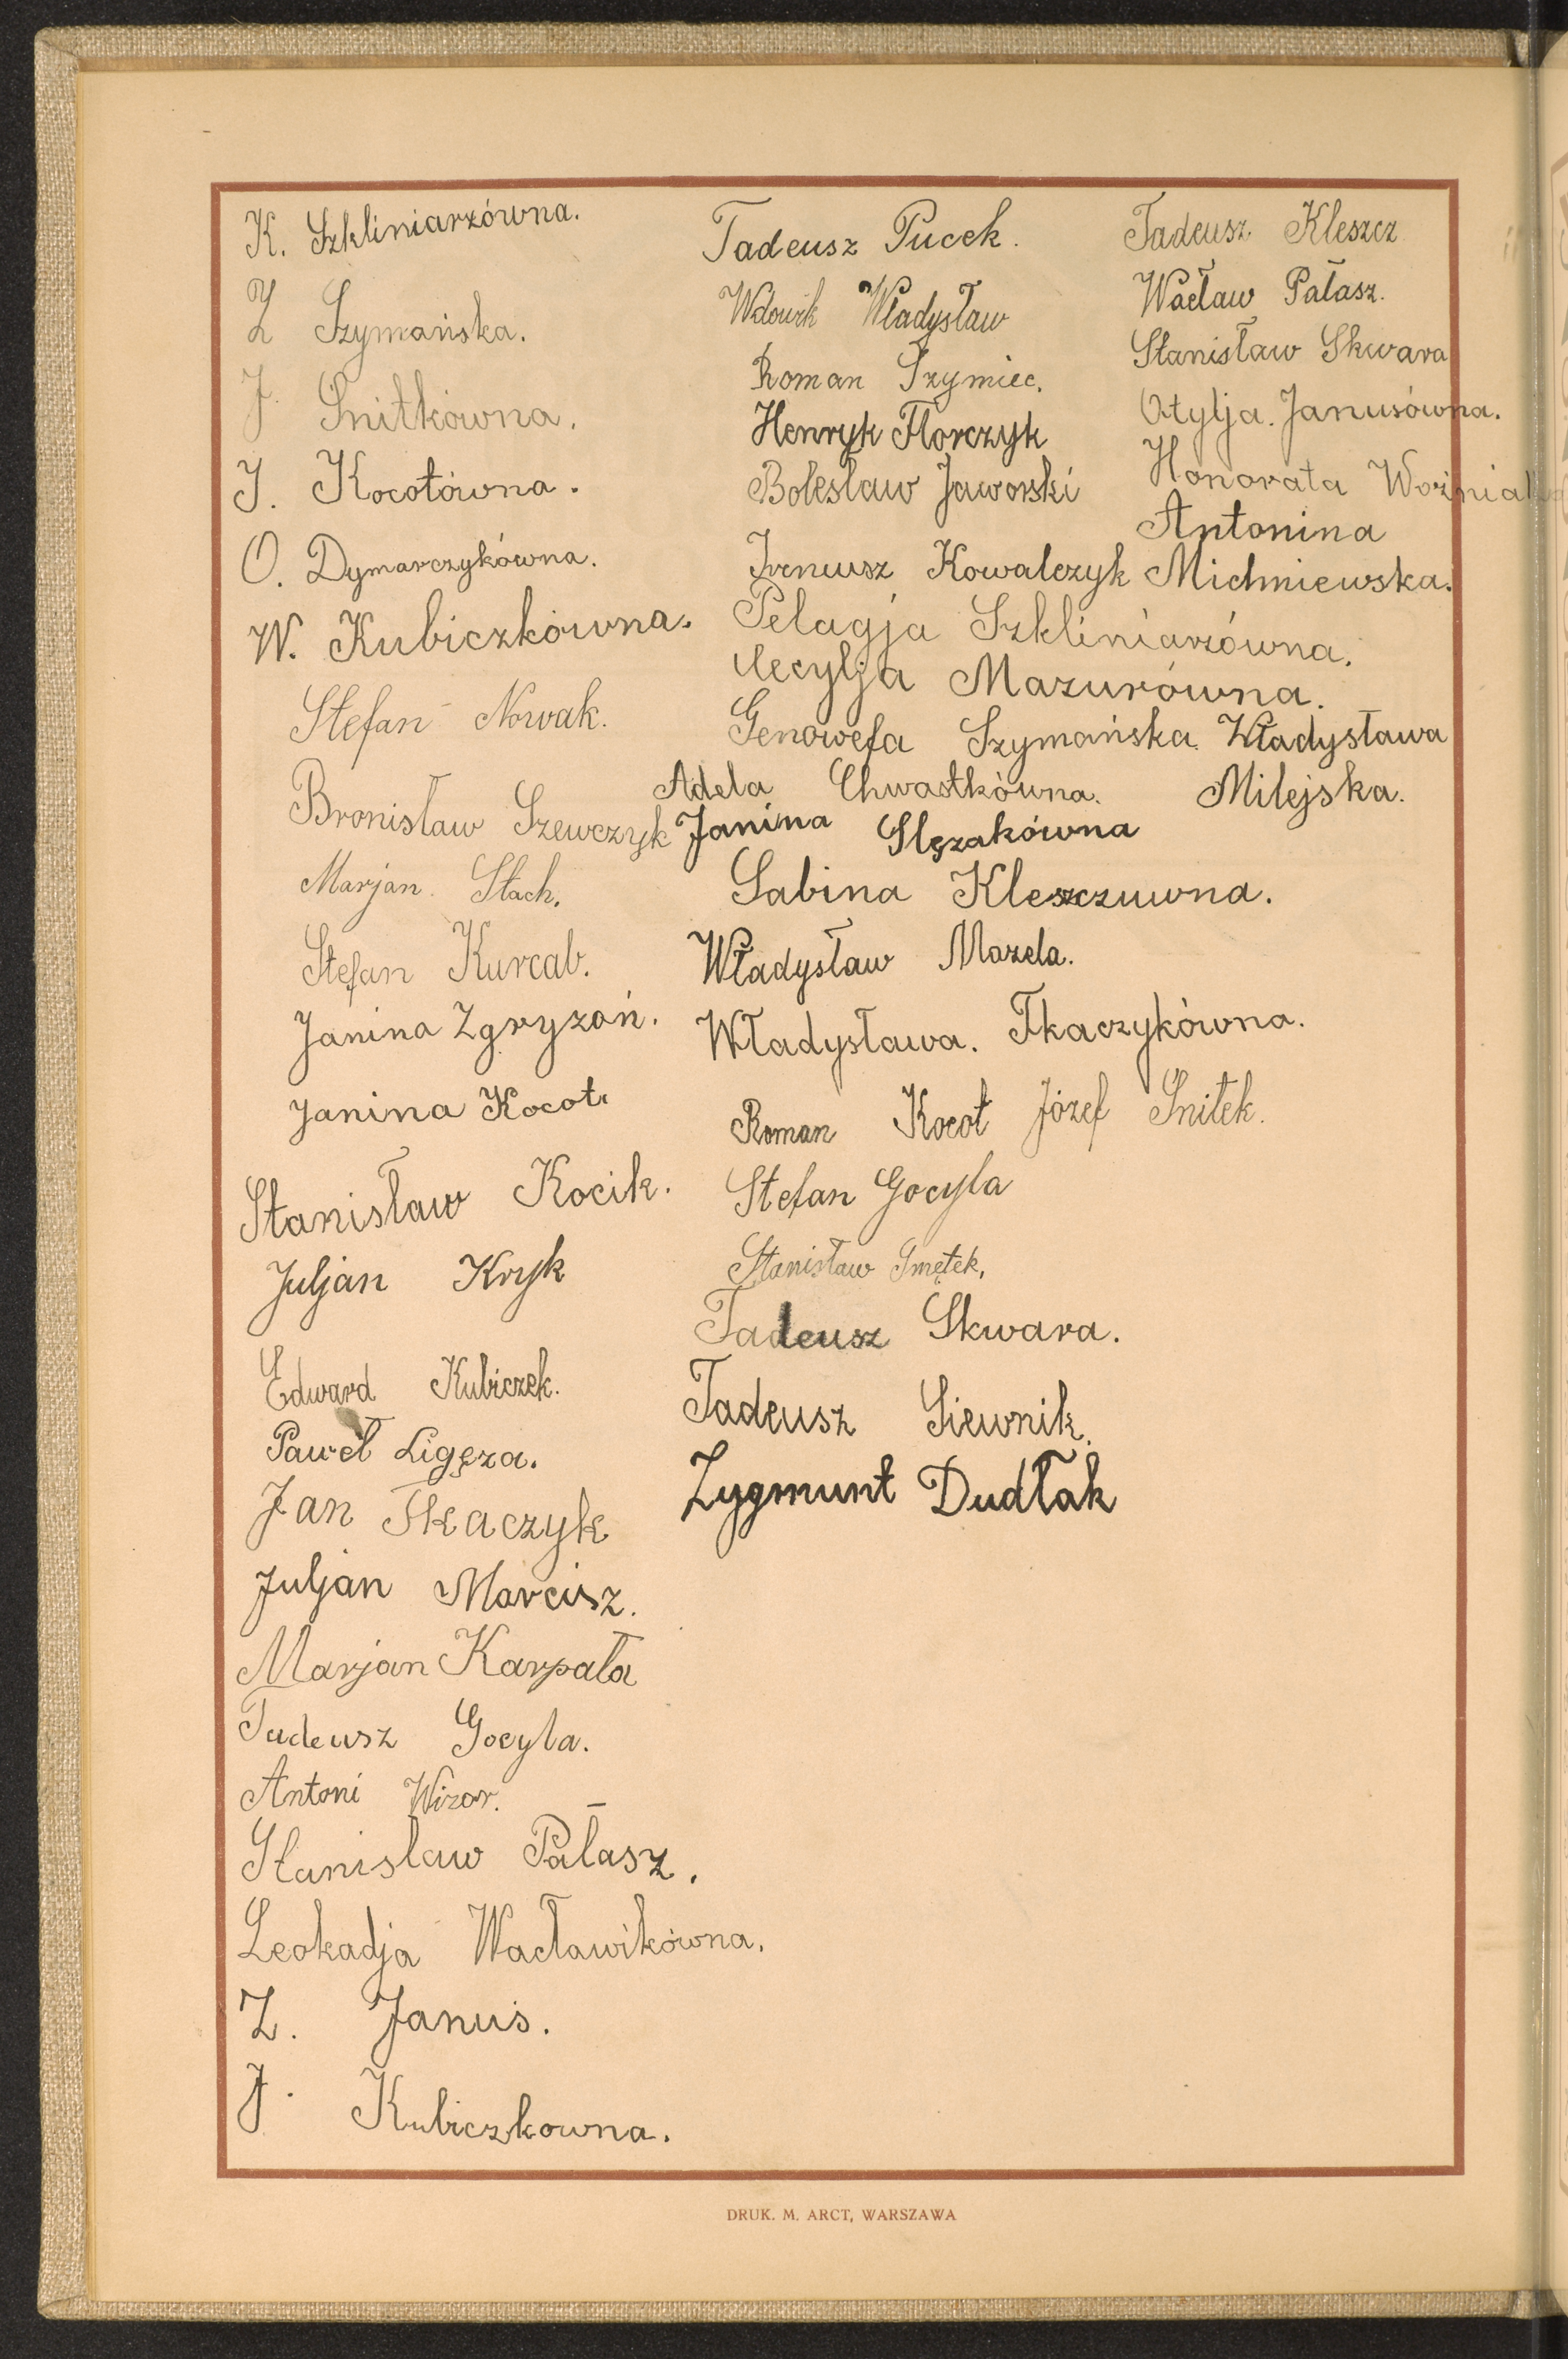 K. Szkliniarzówna.
Z Szymańska.
J. Snitkówna.
J. Kocotówna.
O. Dymarczykówna.
W. Kubiczkówna.
Stefan Nowak.
Bronisław Szewczyk
Marjan Stach.
Stefan Kurcab.
Janina Zgryzoń.
Janina Kocot.
Stanisław Kocik.
Juljan Kryk
Edward Kubiczek.
Paweł Ligęza.
Jan Tkaczyk
Juljan Marcisz.
Marjan Karpała
Tadeusz Gocyla.
Antoni Wizor.
Stanisław Pałasz.
Leokadja Wacławikówna.
Z. Januś.
J. Kubiczkowna.
Tadeusz Pucek.
Wdowik Władysław
Roman Szymiec.
Henryk Florczyk
Bolesław Jaworski
Ireneusz Kowalczyk
Pelagja Szkliniarzówna.
Cecylja Mazurówna.
Genowefa Szymańska
Adela Chwastkówna.
Janina Slęzakówna
Sabina Kleszczuwna.
Władysław Mazela.
Władysława. Tkaczykówna.
Roman Kocoł Józef Snitek.
Stefan Gocyla
Stanisław Smętek,
Tadeusz Skwara.
Tadeusz Siewnik.
Zygmunt Dudłak
Tadeusz Kleszcz
Wacław Pałasz.
Stanisław Skwara
Otylja. Janusówna.
Honorata
Antonina
Michniewska.
Władysława
Milejska.
DRUK. M. ARCT, WARSZAWA